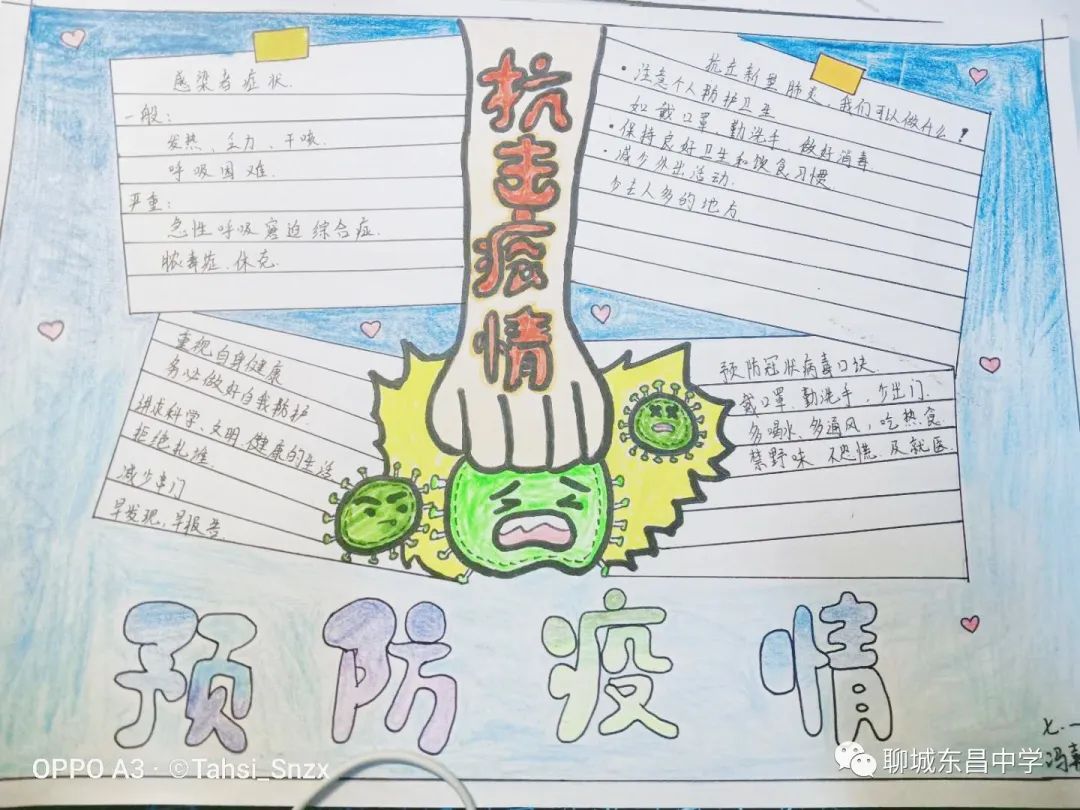 感染者症状.
一般:
发热、乏力、干咳.
呼吸困难.
严重:
急性呼吸窘迫综合症.
脓毒症、休克.
抗击疫情
抗立新型肺炎，我们可以做什么?
·注意个人防护卫生
如戴口罩、勤洗手、做好消毒
·保持良好卫生和饮食习惯.
·减少外出活动.
少去人多的地方
重视自身健康
务必做好自我防护.
讲求科学、文明、健康的生活
拒绝扎堆.
减少串门
早发现、早报告.
预防冠状病毒口诀.
戴口罩、勤洗手,少出门.
多喝水、多通风,吃热食
禁野味 不恐慌.及就医.
预防疫情
七·一
冯
OPPO A3 · ©Tahsi_Snzx
聊城东昌中学